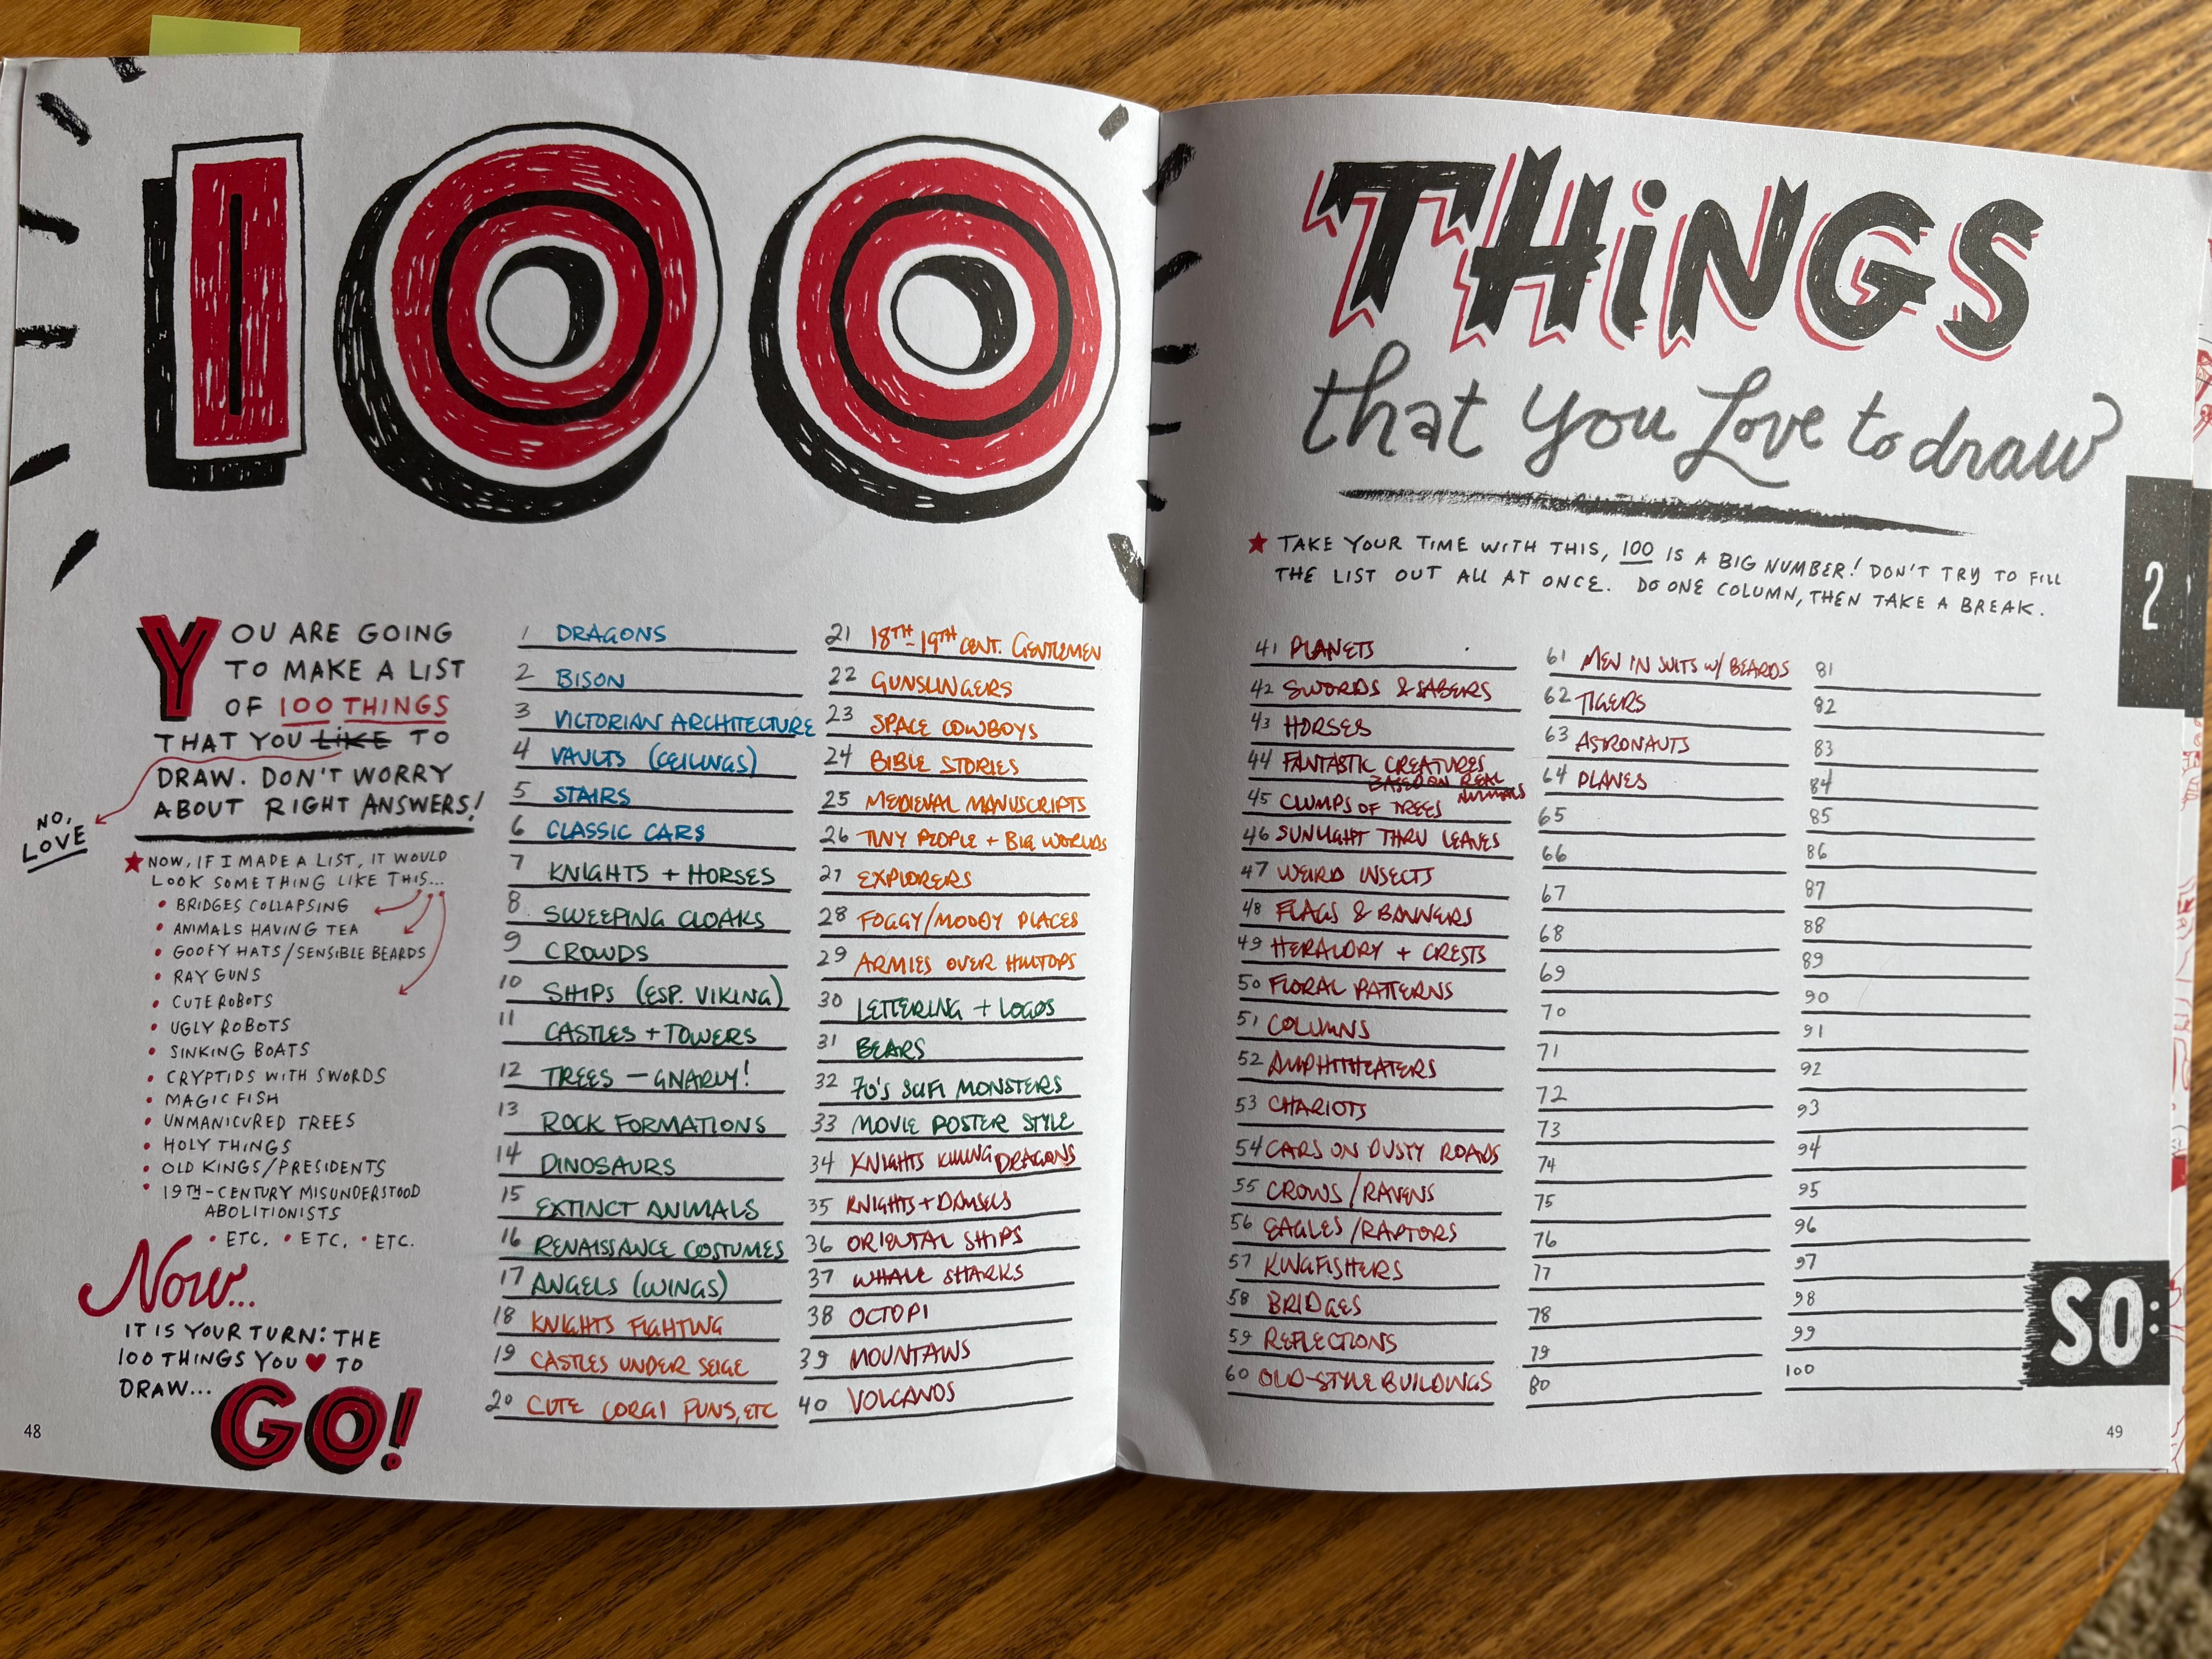 100
THINGS
that you Love to draw
★ TAKE YOUR TIME WITH THIS, 100 IS A BIG NUMBER! DON'T TRY TO FILL
THE LIST OUT ALL AT ONCE. DO ONE COLUMN, THEN TAKE A BREAK.
2
YOU ARE GOING
TO MAKE A LIST
OF 100 THINGS
THAT YOU LIKE TO
DRAW. DON'T WORRY
ABOUT RIGHT ANSWERS!
NO,
LOVE
★ NOW, IF I MADE A LIST, IT WOULD
LOOK SOMETHING LIKE THIS...
• BRIDGES COLLAPSING
• ANIMALS HAVING TEA
• GOOFY HATS/SENSIBLE BEARDS
• RAY GUNS
• CUTE ROBOTS
• UGLY ROBOTS
• SINKING BOATS
• CRYPTIDS WITH SWORDS
• MAGIC FISH
• UNMANICURED TREES
• HOLY THINGS
• OLD KINGS/PRESIDENTS
• 19TH-CENTURY MISUNDERSTOOD
ABOLITIONISTS
• ETC. • ETC. • ETC.
Now...
IT IS YOUR TURN: THE
100 THINGS YOU ♥ TO
DRAW...
GO!
48
1 DRAGONS
2 BISON
3 VICTORIAN ARCHITECTURE
4 VAULTS (CEILINGS)
5 STAIRS
6 CLASSIC CARS
7 KNIGHTS + HORSES
8 SWEEPING CLOAKS
9 CROWDS
10 SHIPS (ESP. VIKING)
11 CASTLES + TOWERS
12 TREES — GNARLY!
13 ROCK FORMATIONS
14 DINOSAURS
15 EXTINCT ANIMALS
16 RENAISSANCE COSTUMES
17 ANGELS (WINGS)
18 KNIGHTS FIGHTING
19 CASTLES UNDER SEIGE
20 CUTE CORGI PUNS, ETC
21 18TH-19TH CENT. GENTLEMEN
22 GUNSLINGERS
23 SPACE COWBOYS
24 BIBLE STORIES
25 MEDIEVAL MANUSCRIPTS
26 TINY PEOPLE + BIG WORLDS
27 EXPLORERS
28 FOGGY/MOODY PLACES
29 ARMIES OVER HILLTOPS
30 LETTERING + LOGOS
31 BEARS
32 70'S SCIFI MONSTERS
33 MOVIE POSTER STYLE
34 KNIGHTS KILLING DRAGONS
35 KNIGHTS + DAMSELS
36 ORIENTAL SHIPS
37 WHALE SHARKS
38 OCTOPI
39 MOUNTAINS
40 VOLCANOS
41 PLANETS
42 SWORDS & SABERS
43 HORSES
44 FANTASTIC CREATURES
BASED ON REAL
ANIMALS
45 CLUMPS OF TREES
46 SUNLIGHT THRU LEAVES
47 WEIRD INSECTS
48 FLAGS & BANNERS
49 HERALDRY + CRESTS
50 FLORAL PATTERNS
51 COLUMNS
52 AMPHITHEATERS
53 CHARIOTS
54 CARS ON DUSTY ROADS
55 CROWS/RAVENS
56 EAGLES/RAPTORS
57 KINGFISHERS
58 BRIDGES
59 REFLECTIONS
60 OLD-STYLE BUILDINGS
61 MEN IN SUITS W/ BEARDS
62 TIGERS
63 ASTRONAUTS
64 PLANES
65
66
67
68
69
70
71
72
73
74
75
76
77
78
79
80
81
82
83
84
85
86
87
88
89
90
91
92
93
94
95
96
97
98
99
100
SO:
49